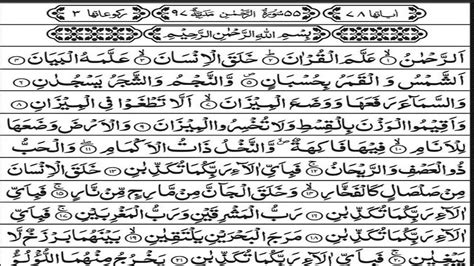 اٰیاتها ٧٨ ٥٥ سُوْرَةُ الرَّحْمٰنِ مَدَنِيَّةٌ ٩٧ رکوعاتها ٣
بِسْمِ اللّٰهِ الرَّحْمٰنِ الرَّحِيْمِ
اَلرَّحْمٰنُ ۙ‏﴿١﴾ عَلَّمَ الْقُرْاٰنَ ؕ‏﴿٢﴾ خَلَقَ الْاِنْسَانَ ۙ‏﴿٣﴾ عَلَّمَهُ الْبَيَانَ ﴿٤﴾
اَلشَّمْسُ وَ الْقَمَرُ بِحُسْبَانٍ ﴿٥﴾ وَّ النَّجْمُ وَ الشَّجَرُ يَسْجُدٰنِ ﴿٦﴾
وَ السَّمَآءَ رَفَعَهَا وَ وَضَعَ الْمِيْزَانَ ۙ﴿٧﴾ اَلَّا تَطْغَوْا فِي الْمِيْزَانِ ﴿٨﴾
وَ اَقِيْمُوا الْوَزْنَ بِالْقِسْطِ وَ لَا تُخْسِرُوا الْمِيْزَانَ ﴿٩﴾ وَ الْاَرْضَ وَضَعَهَا
لِلْاَنَامِ ۙ﴿١٠﴾ فِيْهَا فَاكِهَةٌ ۪ۙ وَّ النَّخْلُ ذَاتُ الْاَكْمَامِ ﴿١١﴾ وَ الْحَبُّ
ذُو الْعَصْفِ وَ الرَّيْحَانُ ﴿١٢﴾ فَبِاَيِّ اٰلَآءِ رَبِّكُمَا تُكَذِّبٰنِ ﴿١٣﴾ خَلَقَ الْاِنْسَانَ
مِنْ صَلْصَالٍ كَالْفَخَّارِ ۙ﴿١٤﴾ وَ خَلَقَ الْجَآنَّ مِنْ مَّارِجٍ مِّنْ نَّارٍ ﴿١٥﴾ فَبِاَيِّ
اٰلَآءِ رَبِّكُمَا تُكَذِّبٰنِ ﴿١٦﴾ رَبُّ الْمَشْرِقَيْنِ وَ رَبُّ الْمَغْرِبَيْنِ ﴿١٧﴾ فَبِاَيِّ
اٰلَآءِ رَبِّكُمَا تُكَذِّبٰنِ ﴿١٨﴾ مَرَجَ الْبَحْرَيْنِ يَلْتَقِيٰنِ ﴿١٩﴾ بَيْنَهُمَا بَرْزَخٌ لَّا
يَبْغِيٰنِ ﴿٢٠﴾ فَبِاَيِّ اٰلَآءِ رَبِّكُمَا تُكَذِّبٰنِ ﴿٢١﴾ يَخْرُجُ مِنْهُمَا اللُّؤْلُؤُ